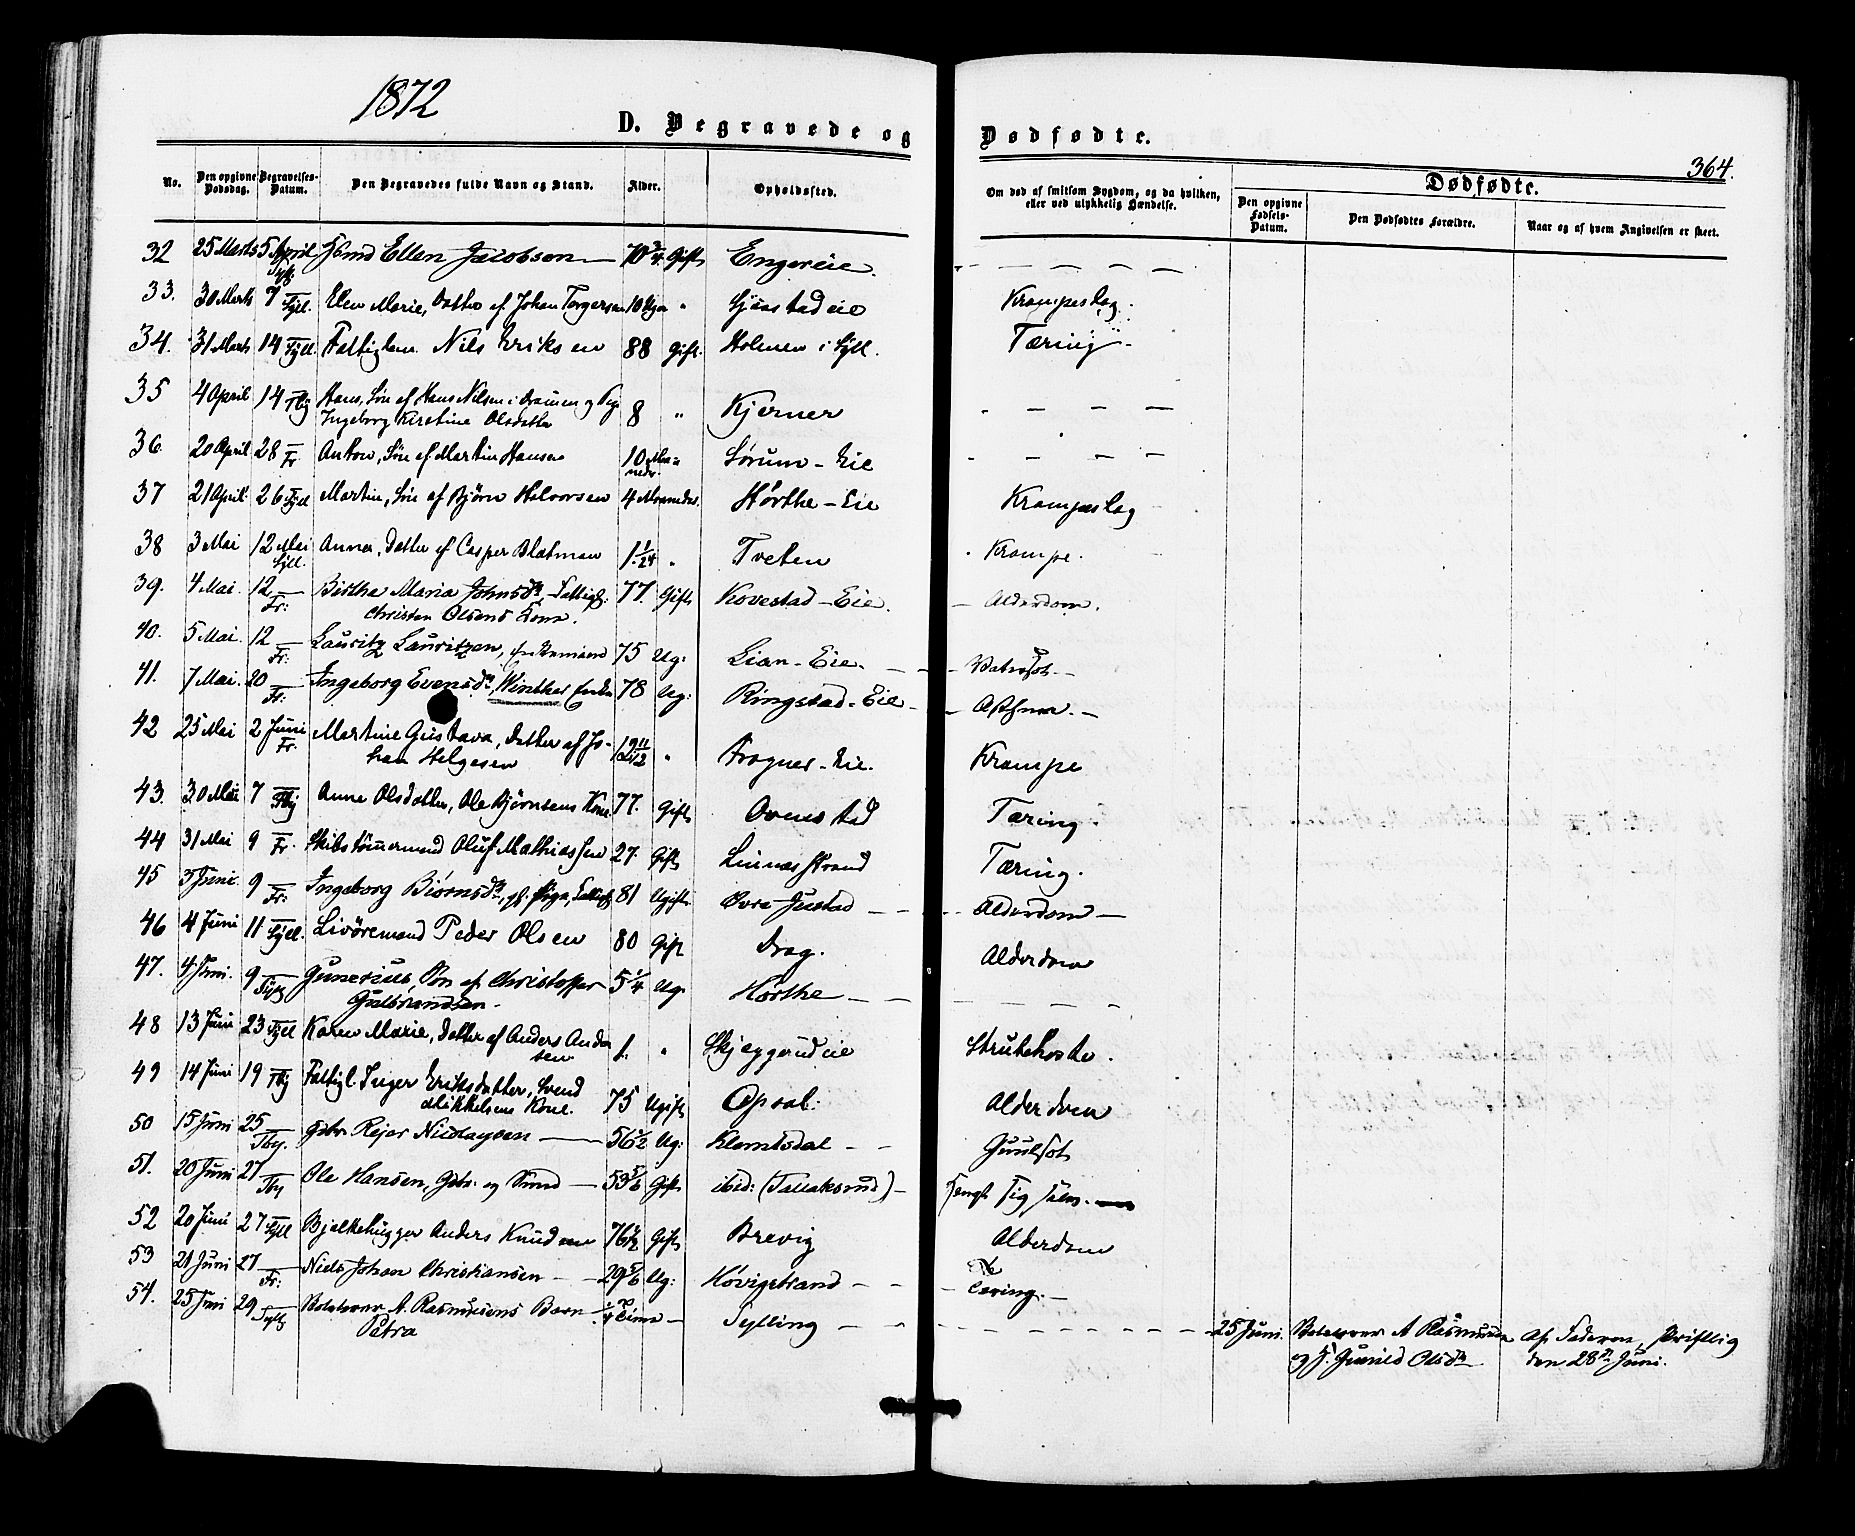 1872
D. Begravede og Dødfødte.
364.
No.
Den opgivne Dødsdag.
Begravelses-Datum.
Den Begravedes fulde Navn og Stand.
Alder.
Opholdssted.
Om død af smitsom Sygdom, og da hvilken, eller ved ulykkelig Hændelse.
Dødfødte.
Den opgivne Fødsels-Datum.
Den Dødfødtes Forældre.
Naar og af hvem Angivelsen er skeet.
32 25 Marts 5 April Ellen Jacobsen 70 3/4 Gift Engereie.
33. 30 Marts 7 Syll. Elen Marie, Datter af Johan Torgersen 10 Uger " Gjøstadeie Krampeslag.
34. 31 Marts 14 Syll. Fattiglem Nils Eriksen 88 Gift. Holmen i Syll. Tæring
35 4 April 14 Tby Hans, Søn af Hans Nilsen i Dramen og Pige
Ingeborg Kirstine Olsdatter 8 " Kjerner
36. 20 April 28 Fr. Anton, Søn af Martin Hansen 10 Maaneder Sørum-Eie
37 21 April 26 Syll Martin, Søn af Bjørn Halvorsen 4 Maaneder. Hørthe-Eie Krampeslag
38 3 Mai 12 Mai Syll. Anna, Datter af Casper Blatman 1 1/24 " Tveten Krampe.
39. 4 Mai. 12 Fr: Birthe Maria Johnsdtr, Fattigl:
Christen Olsens Kone. 77. Gift Kovestad-Eie. Alderdom.
40. 5 Mai. 12 Fr: Lauritz Lauritzen, 75 Ug: Lian-Eie. Vatersot
41. 7 Mai. 20 Fr: Ingeborg Evensdtr Winther 78 Ug: Ringstad-Eie Asthma.
42 25 Mai 2 Juni Fr. Martine Gustava, Datter af Jo-
han Helgesen 12 11/12 " Fragnes-Eie. Krampe
43. 30 Mai 7 Tby Anne Olsdatter, Ole Bjørnsens Kone 77. Gift Ovnestad Tæring.
44 31 Mai 9 Fr. Skibstømmermand Oluf Mathiassen 27. Gift Linnesstrand Tæring.
45 3 Juni. 9 Fr: Ingeborg Biørnsdtr, gl. Pige, Fattigl. 81 Ugift Øvre-Justad Alderdom
46 4 Juni 11 Syll. Livøremand Peder Olsen 80 Gift Drag. Alderdom
47. 4 Juni. 9 Gunerius, Søn af Christoffer
Gulbrandsen. 5 1/4 Ug. Hørthe
48 13 Juni 23 Syll Karen Marie, Datter af Anders Ander
sen 1. " Skjæggerudeie Strubehoste.
49 14 Juni 19 Tby Fattigl. Inger Eriksdatter, Svend
Mikkelsens Kone. 75 Ugift Opsal. Alderdom
50 15 Juni 25 Tby. Gbr. Rejer Nicolaysen 56 1/2 Ug: Klemtsdal Guulsot
51. 20 Juni 27 Tby Ole Hansen, Gbr. og Smed 53 5/6 Gift ibid: (Tallaksrud)
52 20 Juni 27 Syll Bjelkehugger Anders Knudsen 76 1/2 Gift Brevig Alderdom
53 21 Juni 27 Fr: Niels Johan Christiansen 29 5/6 Ug: Høvigstrand Tæring.
54. 25 Juni 29 Syll A. Rasmusens Barn
Petra 1/4 Time Sylling
25 Juni. A Rasmusen
og H. Gunild Olsdtr
Af Faderen, skriftlig
den 28de Juni.